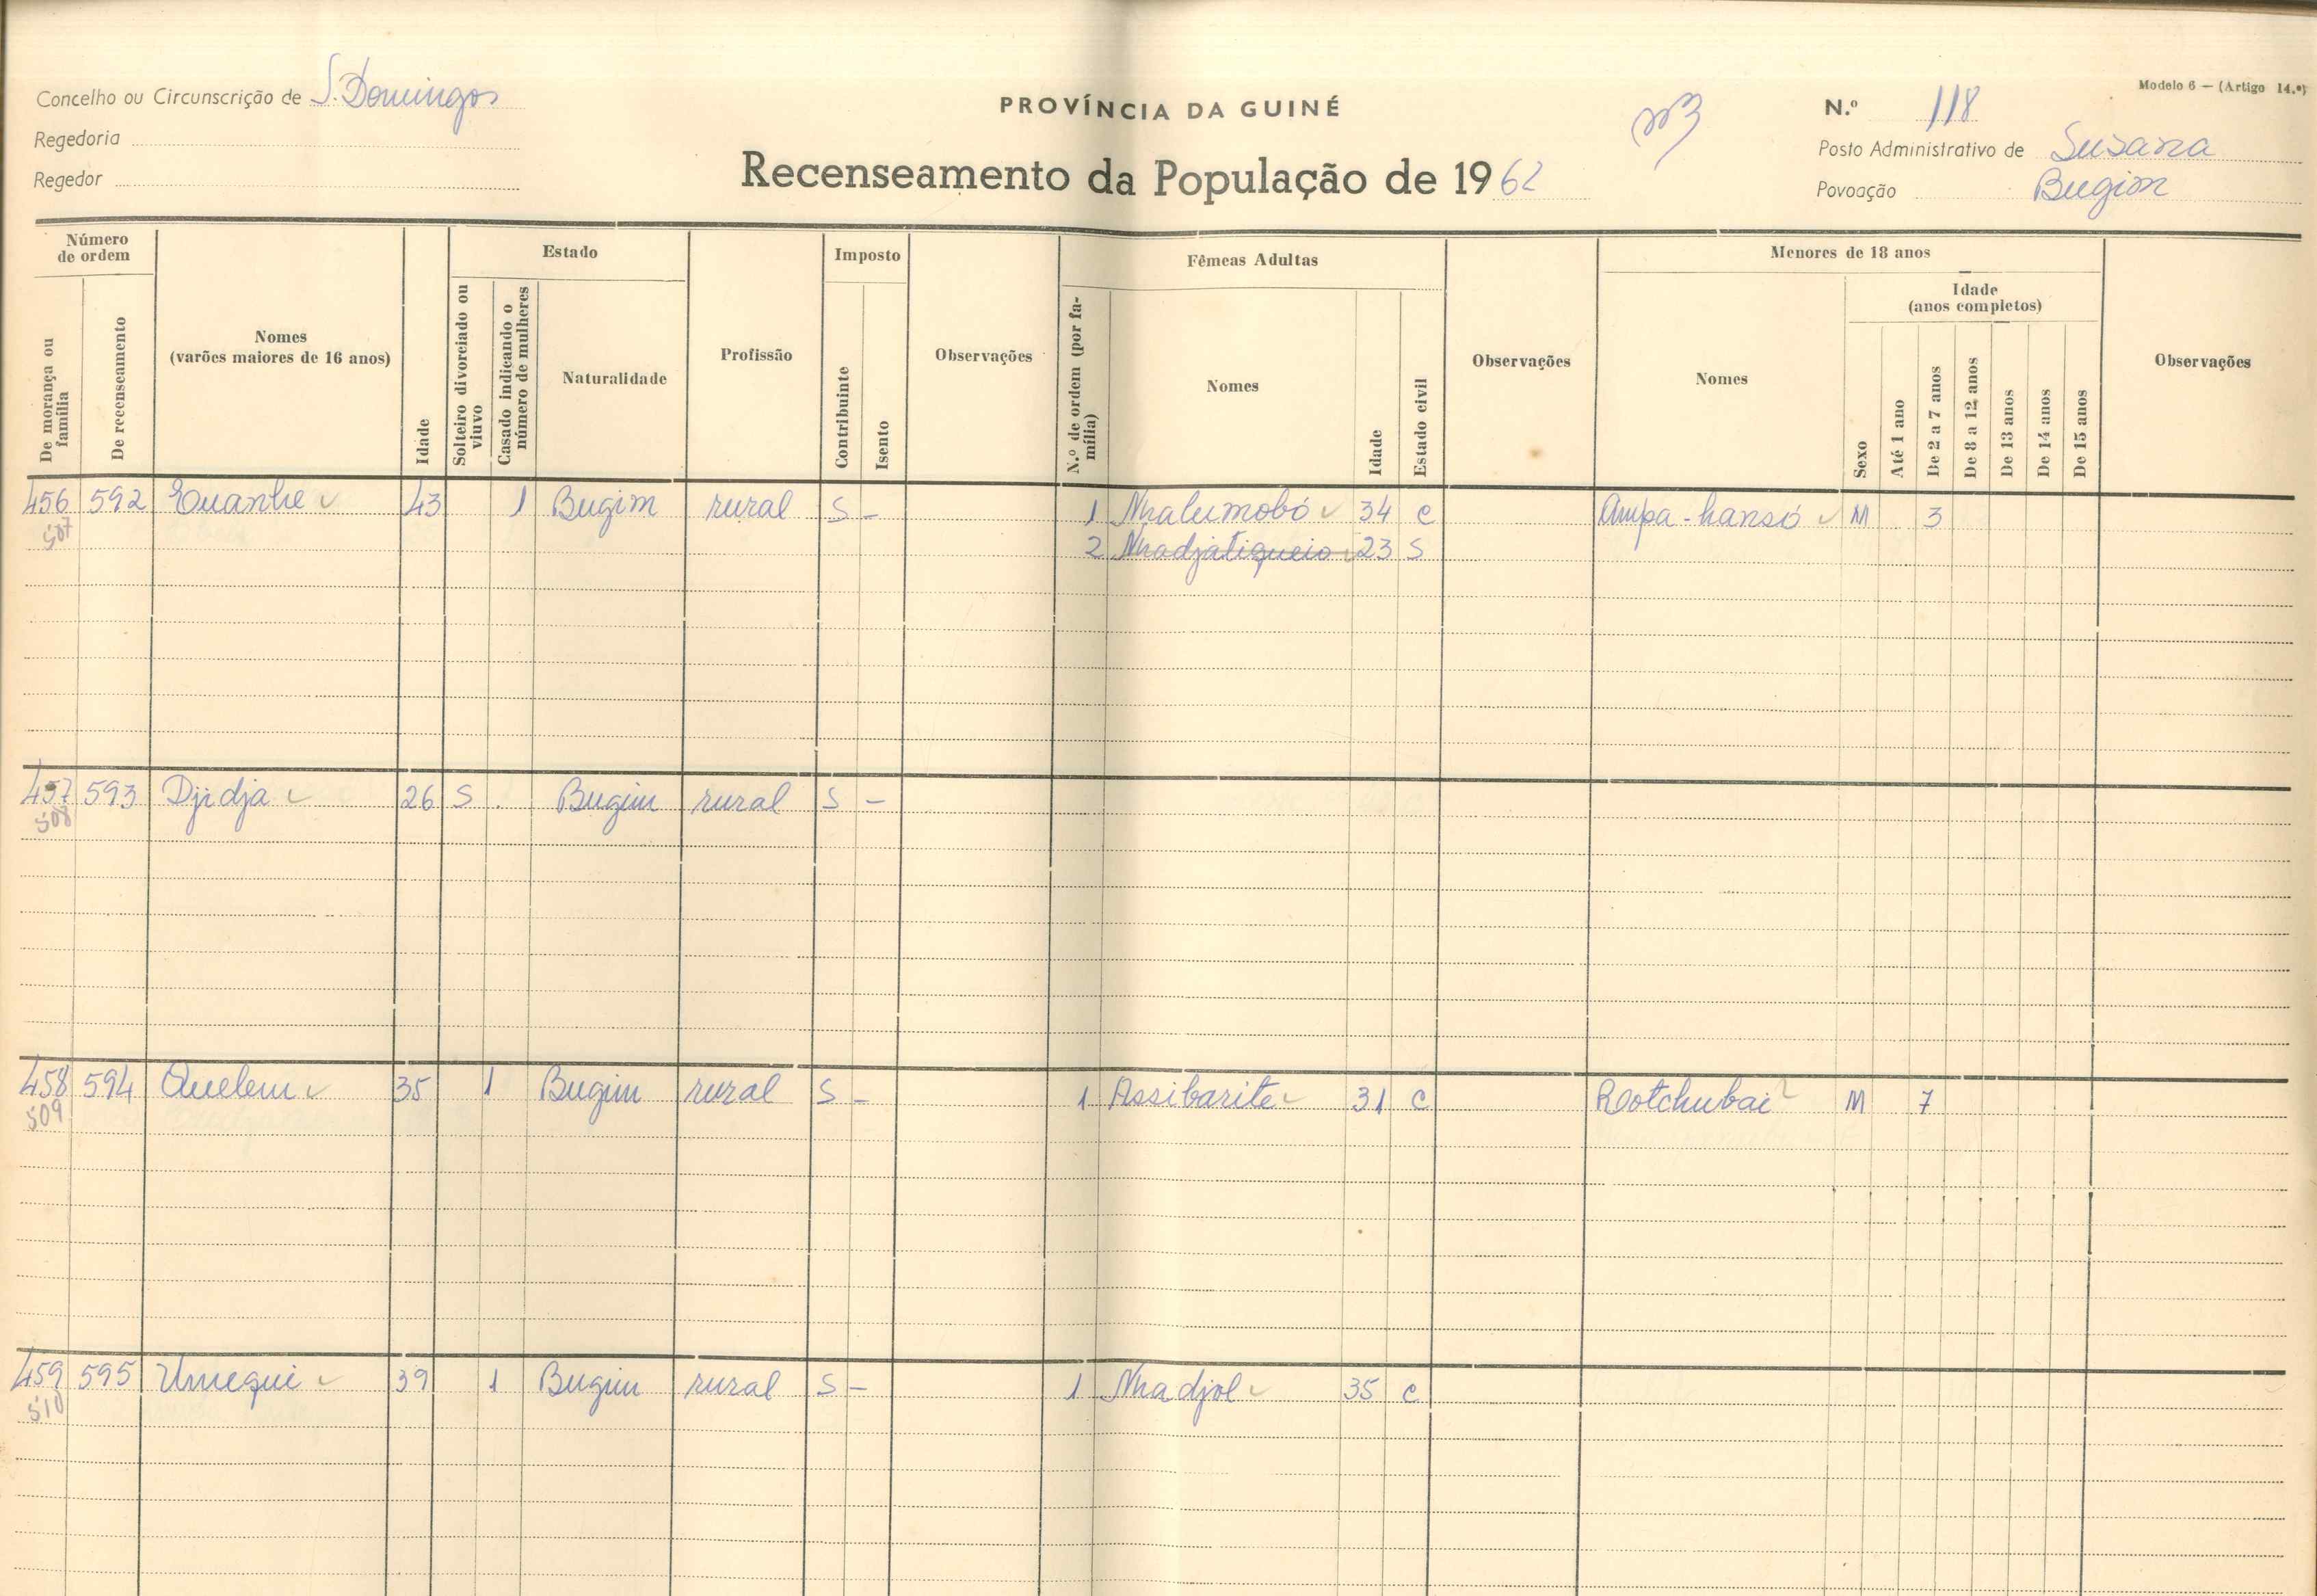 Modelo 6 — (Artigo 14.º)
Concelho ou Circunscrição de S. Domingos
PROVÍNCIA DA GUINÉ
N.º 118
Regedoria
Posto Administrativo de Susana
Regedor
Recenseamento da População de 1962
Povoação Bugim
Número de ordem
Estado
Imposto
Fêmeas Adultas
Menores de 18 anos
Idade
(anos completos)
De morança ou família
De recenseamento
Nomes
(varões maiores de 16 anos)
Idade
Solteiro divorciado ou viuvo
Casado indicando o número de mulheres
Naturalidade
Profissão
Contribuinte
Isento
Observações
N.º de ordem (por família)
Nomes
Idade
Estado civil
Observações
Nomes
Sexo
Até 1 ano
De 2 a 7 anos
De 8 a 12 anos
De 13 anos
De 14 anos
De 15 anos
Observações
456 592 Euanhe 43 1 Bugim rural S – 1 Nhalumobó 34 c Ampa-hansó M 3
507 2 Nhadjatiqueio 23 S
457 593 Djidja 26 S Bugim rural S –
508
458 594 Quelem 35 1 Bugim rural S – 1 Assibarite 31 c Rotchubai M 7
509
459 595 Umequi 39 1 Bugim rural S – 1 Nhadjol 35 c
510